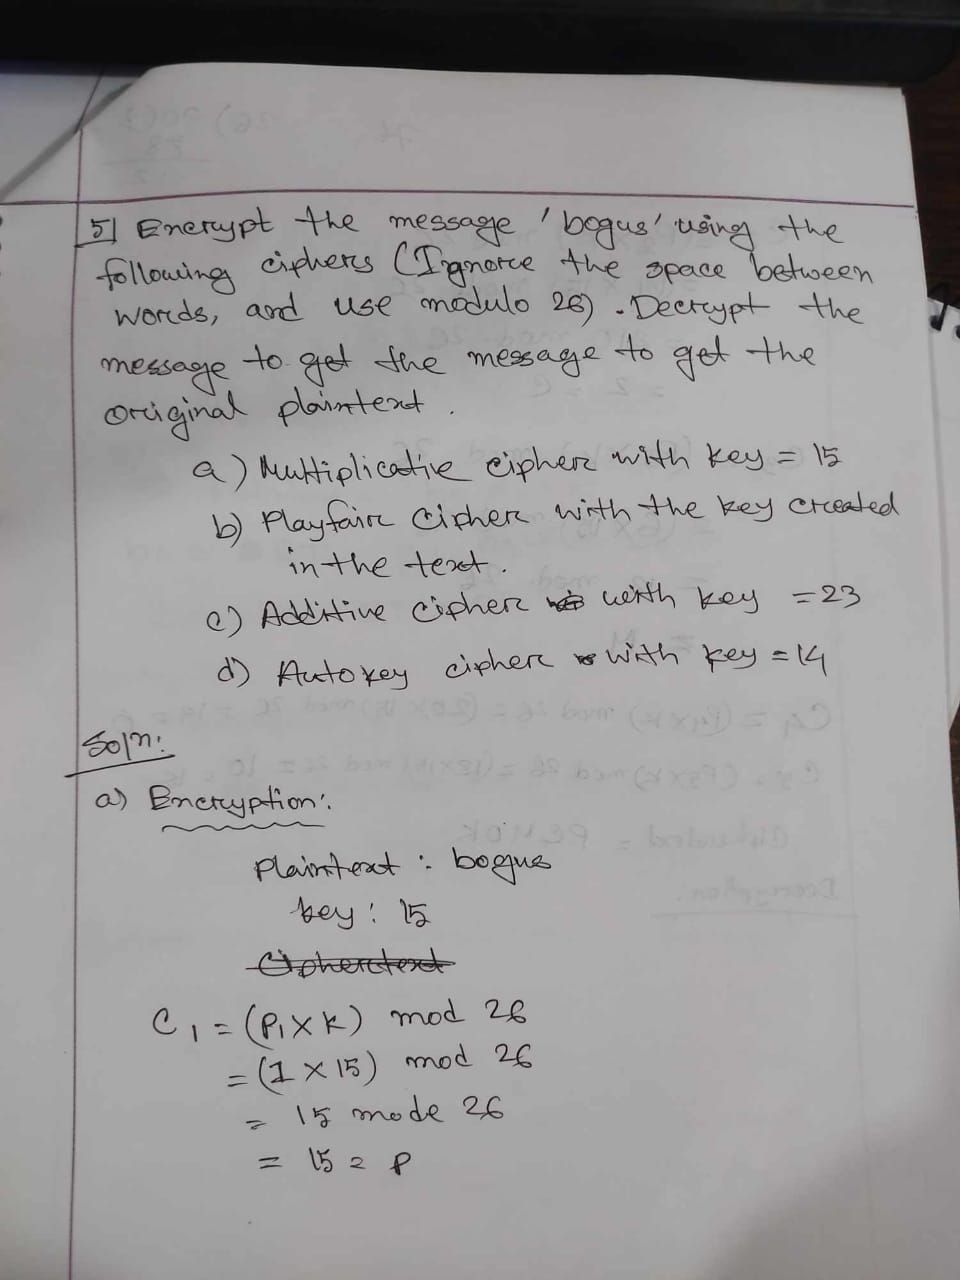 5] Encrypt the message 'bogus' using the
following ciphers (Ignore the space between
words, and use modulo 26). Decrypt the
message to get the message to get the
original plaintext.
a) Multiplicative cipher with key = 15
b) Playfair Cipher with the key created
in the text.
c) Additive Cipher with key = 23
d) Autokey cipher with key = 14
Soln:
a) Encryption:
Plaintext : bogus
key : 15
Ciphertext
C1 = (P1 X K) mod 26
= (1 X 15) mod 26
= 15 mode 26
= 15 = P